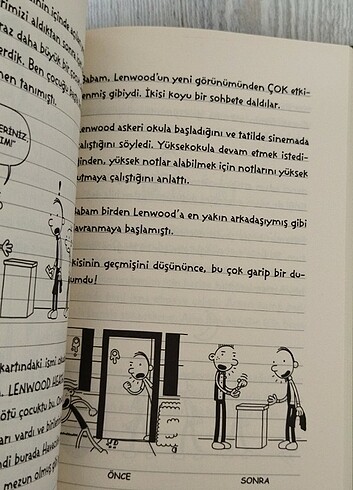 rimizi aldıktan sonra
raz daha büyük bir
erdik. Ben çocuğu
men tanımıştı.
ERİNİZ
IM!"
kartındaki ismi
LENWOOD
ötü çocuktu bu.
arı vardı ve
ndi burada
mezun olmuş
Babam, Lenwood'un yeni görünümünden ÇOK etki-
enmiş gibiydi. İkisi koyu bir sohbete daldılar.
Lenwood askeri okula başladığını ve tatilde sinemada
alıştığını söyledi. Yüksekokula devam etmek istedi-
inden, yüksek notlar alabilmek için notlarını yüksek
utmaya çalıştığını anlattı.
abam birden Lenwood'a en yakın arkadaşıymış gibi
avranmaya başlamıştı.
kisinin geçmişini düşününce, bu çok garip bir du-
umdu!
ÖNCE
SONRA